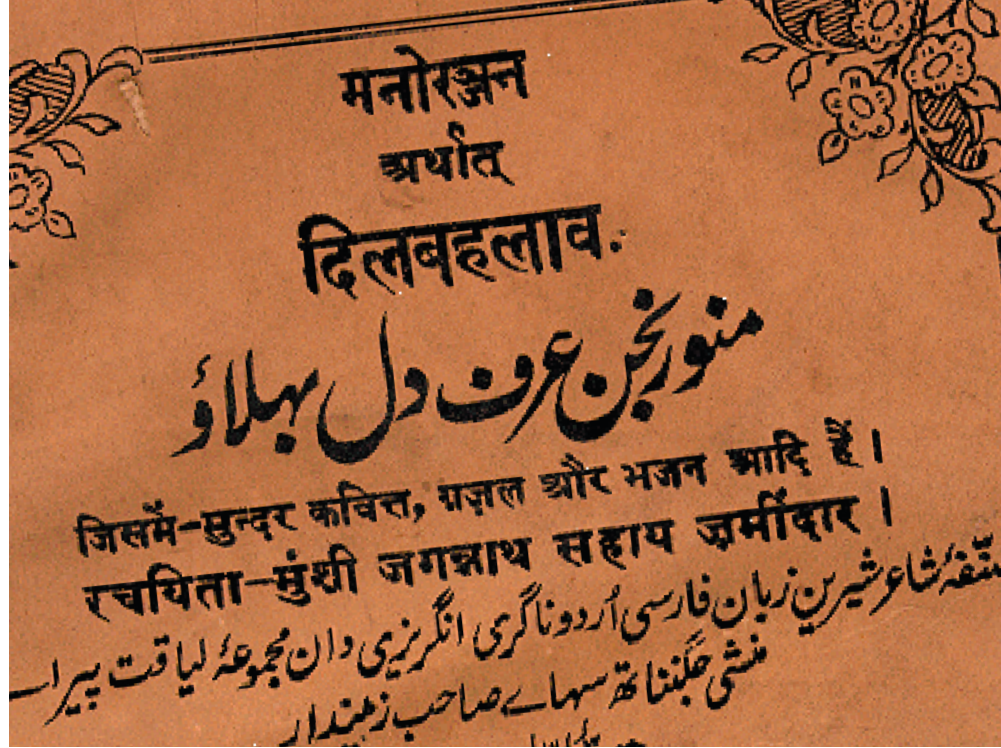 मनोरञ्जन
अर्थात्
दिलबहलाव.
منورنجن عرف دل بہلاؤ
जिसमें-सुन्दर कवित्त, ग़ज़ल और भजन आदि हैं।
रचयिता-मुंशी जगन्नाथ सहाय ज़मींदार।
شاعر شیرین زبان فارسی اُردو ناگری انگریزی دان مجموعۂ لیاقت
منشی جگنناتھ سہاے صاحب زمیندار